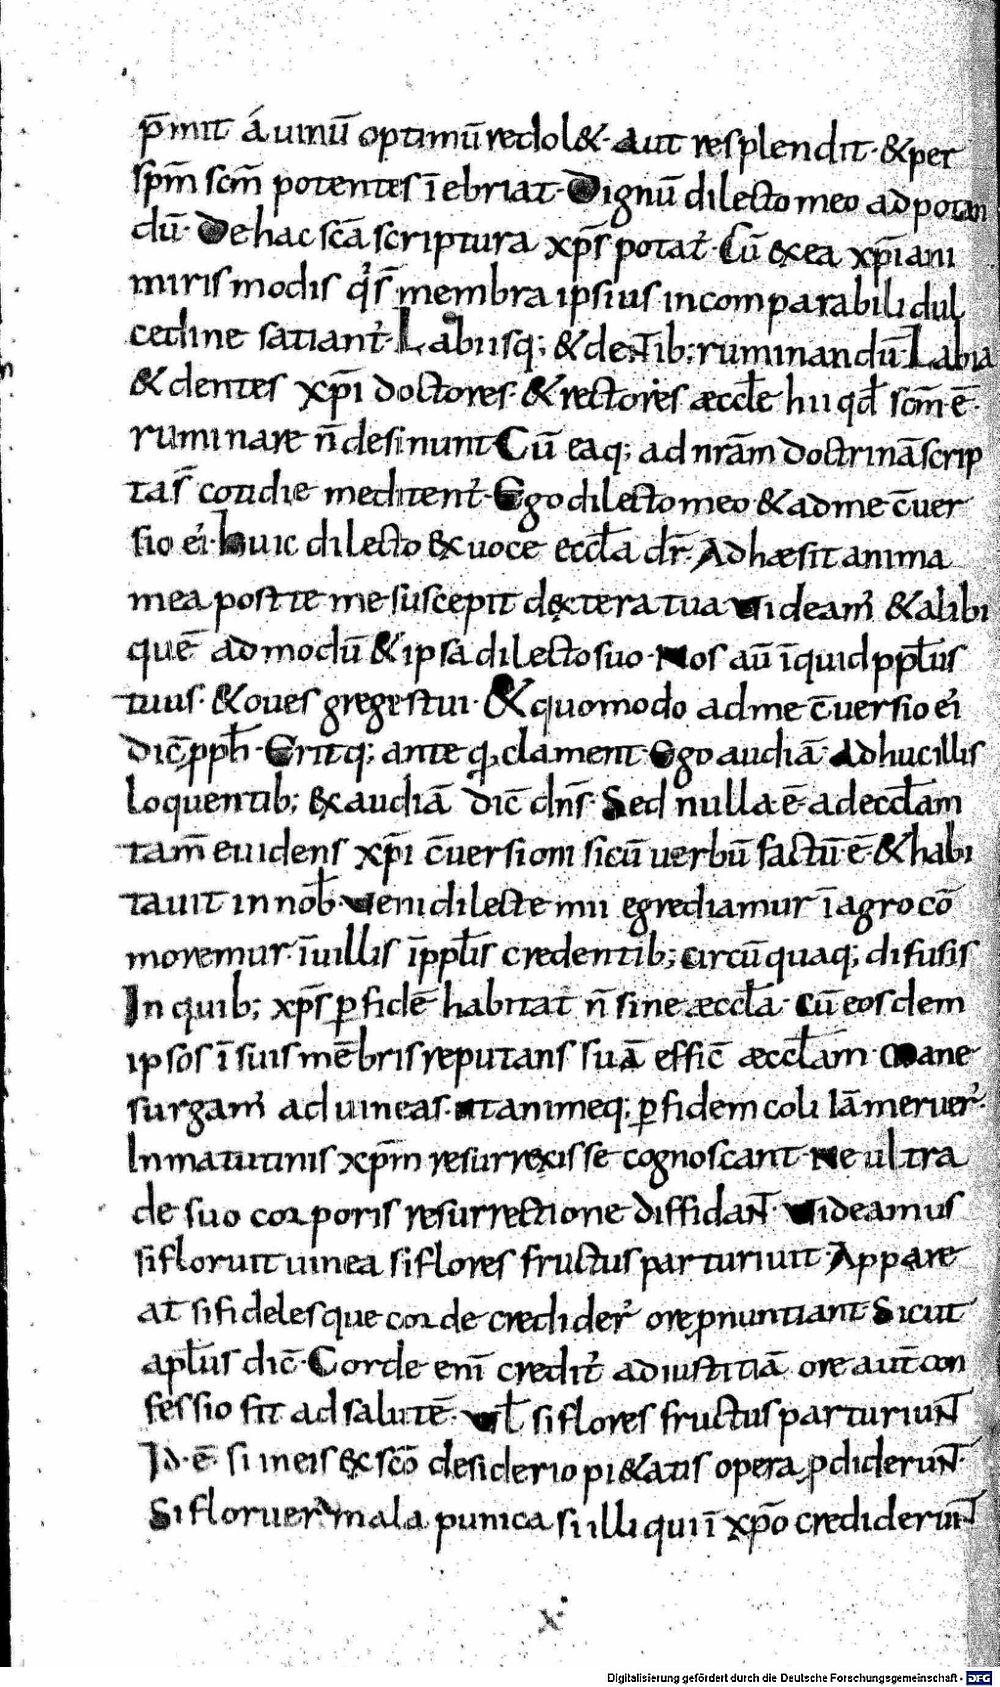 p̄mit á uinū optimū redol&· aut resplendit· & per
sp̄m sc̄m potentes īebriat· Dignū dilecto meo ad potan
dū· De hac sc̄a scriptura xp̄s potat᷑· Cū ex ea xp̄iani
miris modis q̓s̄ membra ipsius incomparabili dul
cedine satiant᷑· Labiisq; & dentib; ruminandū· Labia
& dentes xp̄i doctores· & rectores æccl̄e hii qd̄ sc̄m ē·
ruminare n̄ desinunt· Cū eaq; ad nr̄am doctrinā scrip
ta s̄ cotidie meditent᷑· Ego dilecto meo & ad me c̄uer
sio ei᷑· Huic dilecto ex uoce eccl̄a dr̄· Adhæsit anima
mea post te me suscepit dextera tua uideam᷑ & alibi
quē admodū & ipsa dilecto suo· Nos aū īquid ppl̄us
tuus· & oues gregis tui· & quomodo ad me c̄uersio ei᷑
dic̄ pph̄· Eritq; ante q̨ clament· Ego audiā· Adhuc illis
loquentib; exaudiā dic̄ dn̄s· Sed nulla ē ad eccl̄am
tam̄ euidens xp̄i c̄uersioni sicū uerbū factū ē & habi
tauit in nob̄· Ueni dilecte mii egrediamur ī agro cō
moremur· ī uillis ī ppl̄is credentib; circū quaq; difusis
In quib; xp̄s ꝑ fidē habitat n̄ sine æccl̄a· Cū eosdem
ipsos ī suis mēbris reputans suā effic̄ æccl̄am· Mane
surgam᷑ ad uineas· ut animeq; ꝑ fidem coli Iā meruer᷑·
In matutinis xp̄m resurrexisse cognoscant· Ne ultra
de suo corporis resurrectione diffidant· Uideamus
si floruit uinea si flores fructus parturiuit· Appare
at si fideles que corde credider᷑ ore ꝓnuntiant· Sicut
apl̄us dic̄· Corde enī credit᷑ ad iustitiā ore aut̄ con
fessio fit ad salutē· Ul̄ si flores fructus parturiunt
Id· ē· si in eis ex sc̄o desiderio pi&atis opera ꝓdiderunt·
Si floruer᷑ mala punica si illi qui ī xp̄o crediderunt
x·
Digitalisierung gefördert durch die Deutsche Forschungsgemeinschaft - DFG